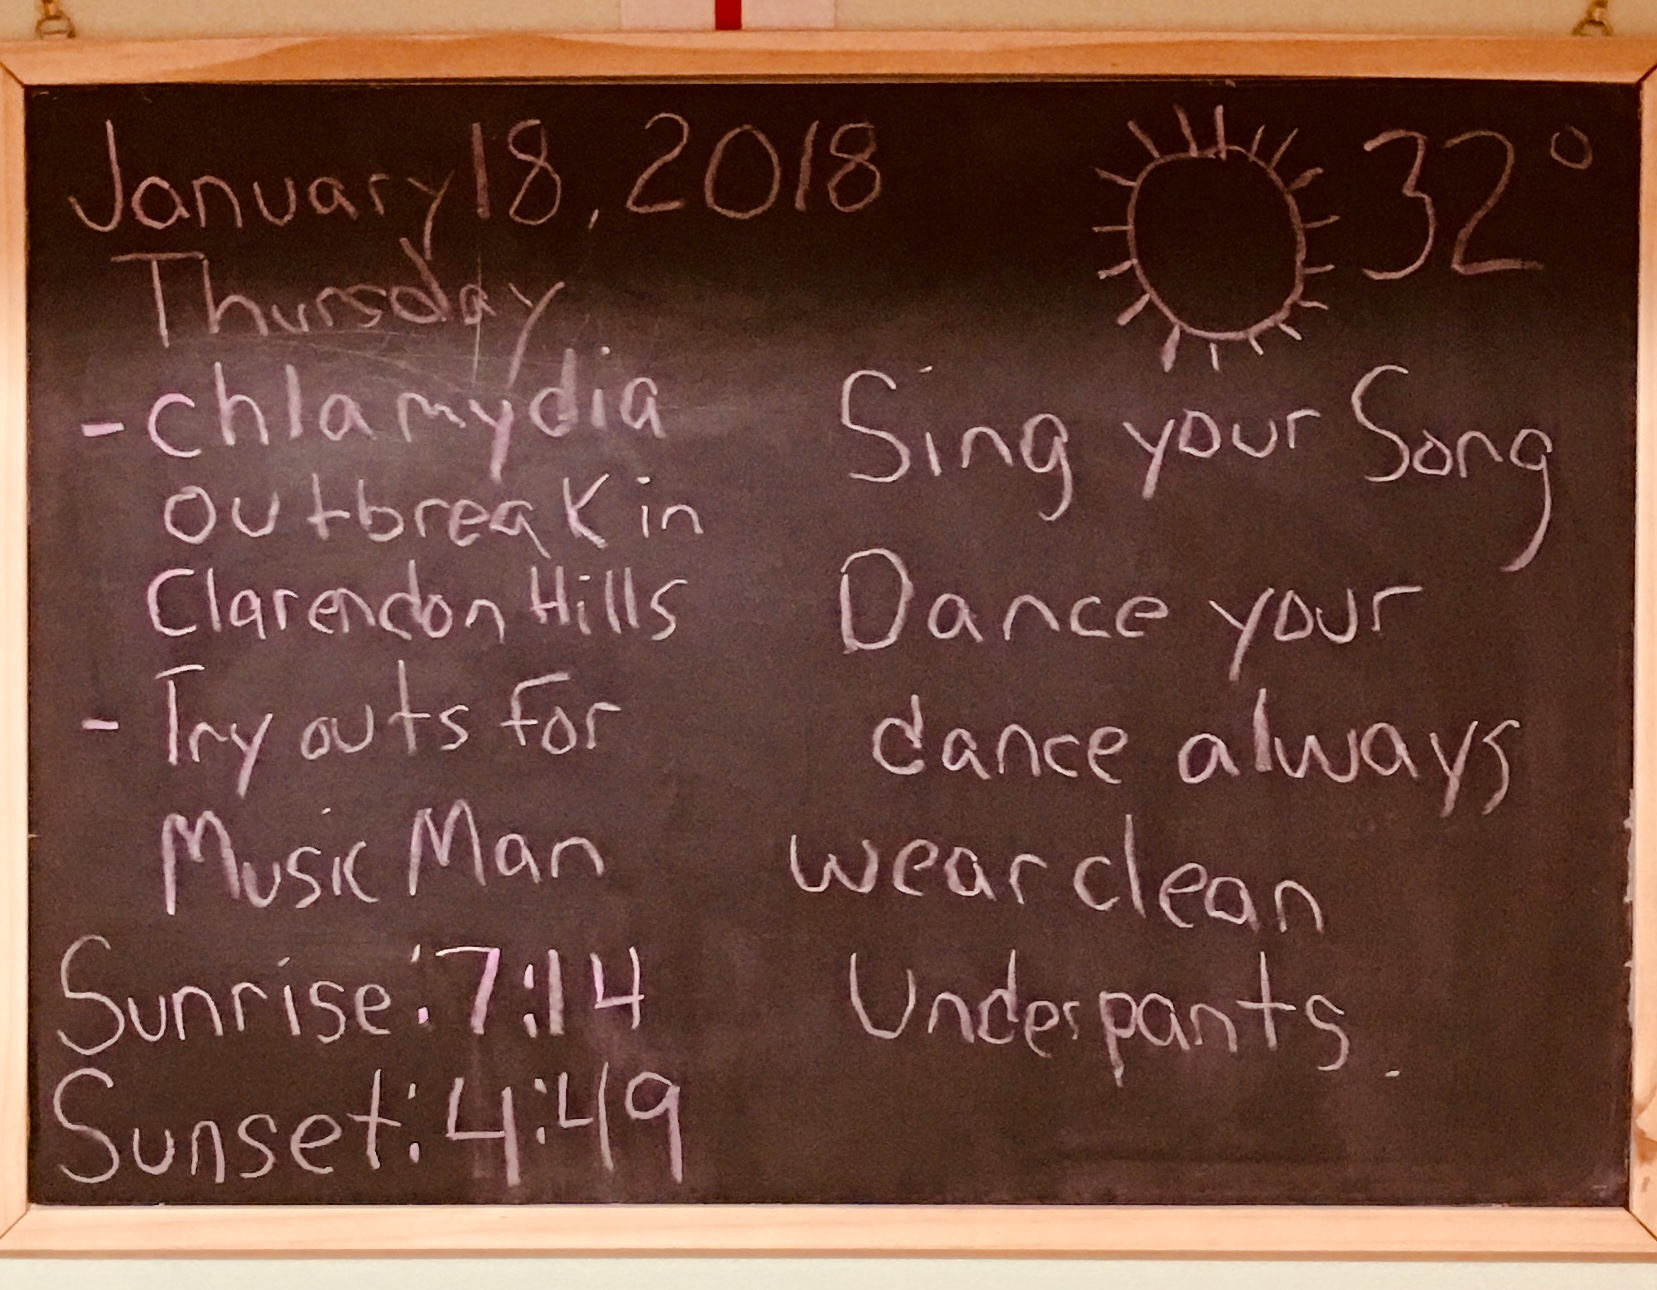 January 18, 2018
Thursday
32°
- chlamydia
outbreak in
Clarendon Hills
- Try outs for
Music Man
Sunrise: 7:14
Sunset: 4:49
Sing your Song
Dance your
dance always
wear clean
Underpants.